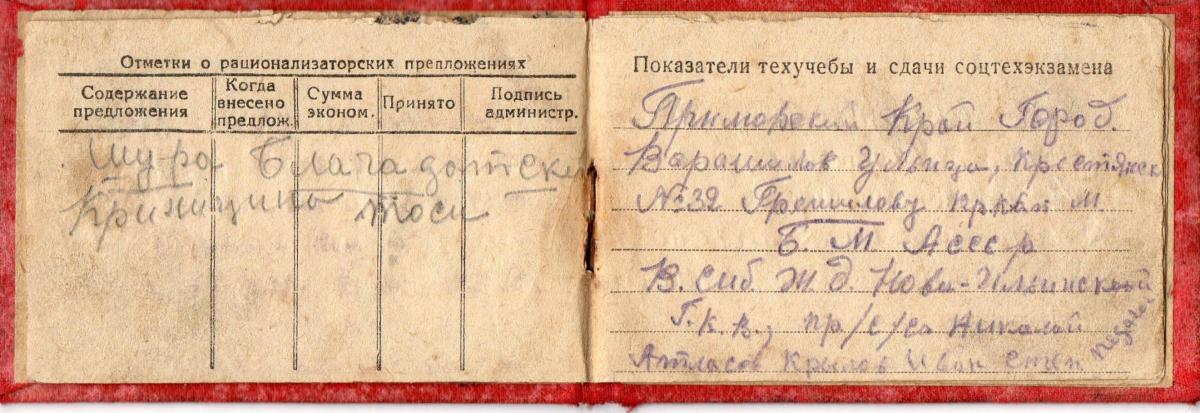 Отметки о рационализаторских предложениях
Содержание предложения
Когда внесено предлож.
Сумма эконом.
Принято
Подпись администр.
Шура Благадатской
Криницина Тоси
Показатели техучебы и сдачи соцтехэкзамена
Приморский Край Город.
Варашилов Ульица, Крестянск
№32
Б. М Асеер
В. сиб. ж д. Нови-Ильинской
Г. К. В. пр/с/са Николай
Атласов Крылов Иван Степ